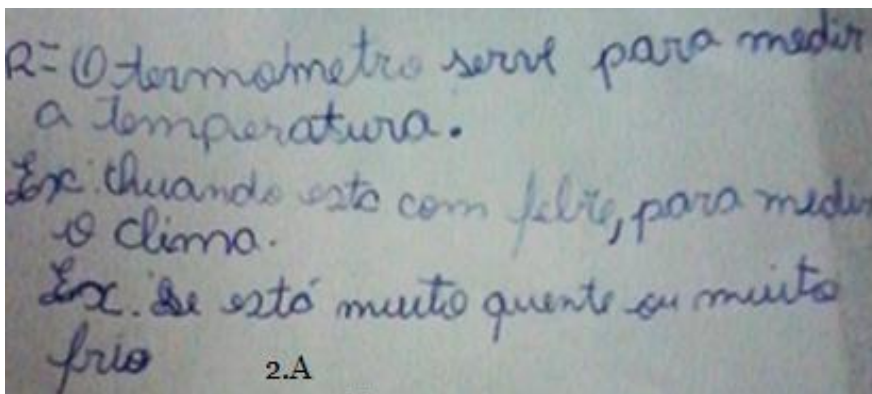 R= O termometro serve para medir
a temperatura.
Ex: Chuando esta com febre, para medir
o clima.
Ex. Se está muito quente ou muito
frio
2.A